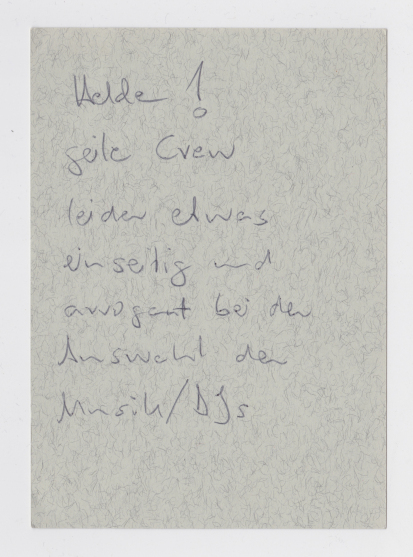 Helde !
geile Crew
leider etwas
einseitig und
arrogant bei der
Auswahl der
Musik/DJs